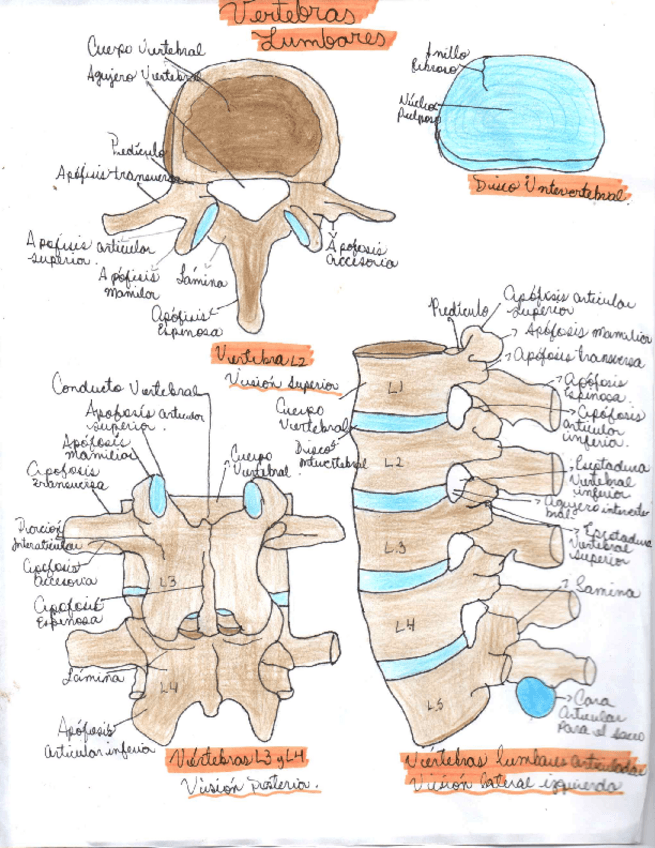 Vertebras
Lumbares
Cuerpo Vertebral
Agujero Vertebral
Pedículo
Apófisis transversa
Apofisis articular
superior.
Apófisis
mamilar
Lámina
Apófisis
Espinosa
Apofosis
accesoria
Vertebra L2
Visión superior
Anillo
fibroso
Núcleo
pulposo
Disco Intervertebral
Conducto Vertebral
Apofosis articular
superior.
Apófosis
mamilar
Apofosis
transversa
Porción
Interarticular
Apofosis
accesoria
Apofosis
Espinosa
Lámina
Apófosis
articular inferior
Cuerpo
Vertebral
L3
L4
Vértebras L3 y L4
Visión Posterior.
Pedículo
apófosis articular
superior
Apófosis mamilar
Apófosis transversa
Apófosis
Espinosa
Apófosis
articular
inferior.
Cuerpo
Vertebral
Discos
Intervertebral
Escotadura
Vertebral
inferior
Agujero interverte
bral.
Escotadura
Vertebral
superior
Lamina
Cara
Articular
Para el sacro
L1
L2
L.3
L4
L5
Vértebras lumbares articuladas
Visión lateral izquierda